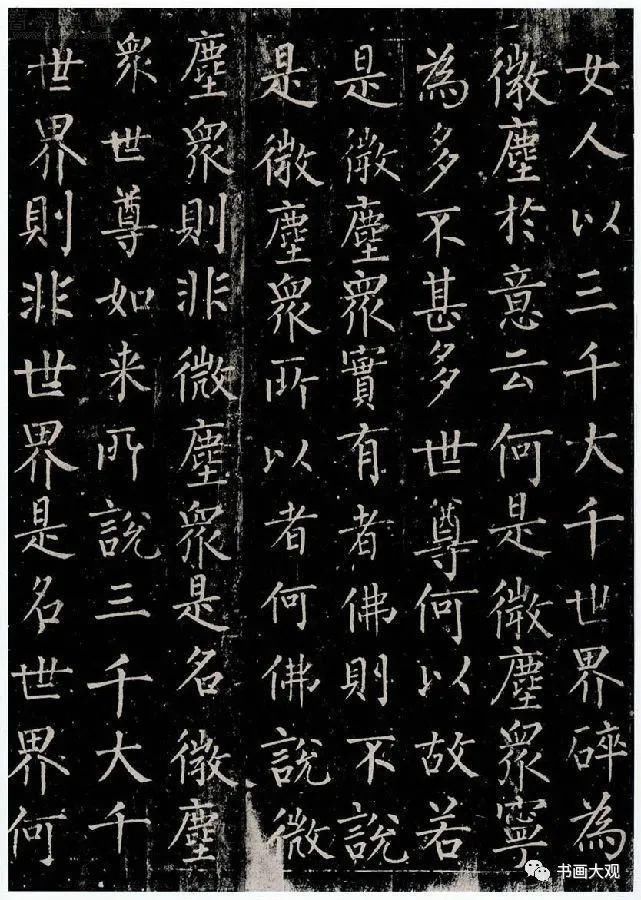 女人以三千大千世界碎為
微塵於意云何是微塵眾寧
為多不甚多世尊何以故若
是微塵眾實有者佛則不說
是微塵眾所以者何佛說微
塵眾則非微塵眾是名微塵
眾世尊如来所說三千大千
世界則非世界是名世界何
书画大观